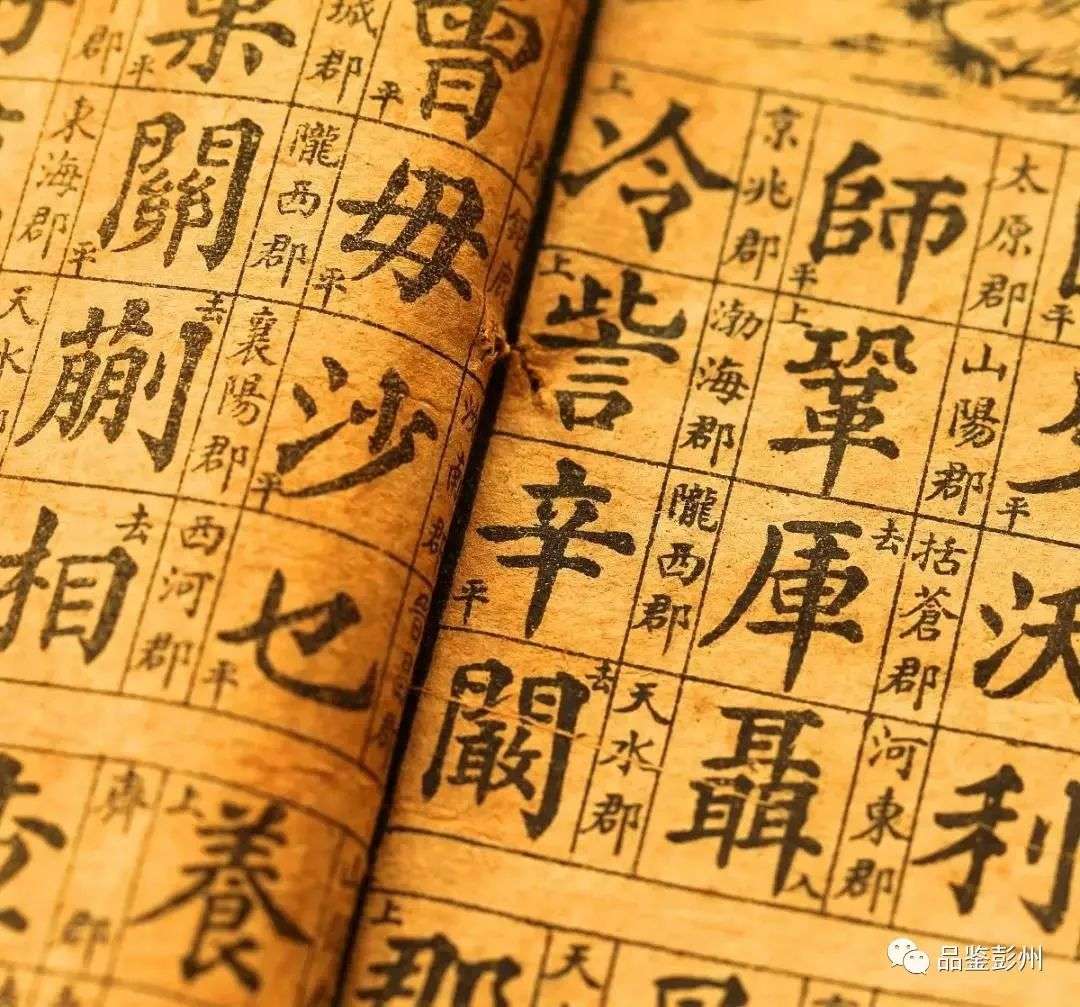 平
平
沃
利
師 平 太原郡
鞏 上 山陽郡
厙 去 括蒼郡
聶 入 河東郡
冷 上 京兆郡
訾 上 渤海郡
辛 平 隴西郡
闞 去 天水郡
那 上 天
曾 平
毋 平
沙 平
乜 平
養 上 山
巢 平 城郡
關 平 隴西郡
蒯 去 襄陽郡
相 去 西河郡
齊郡
郡
東海郡
天水
品鉴彭州